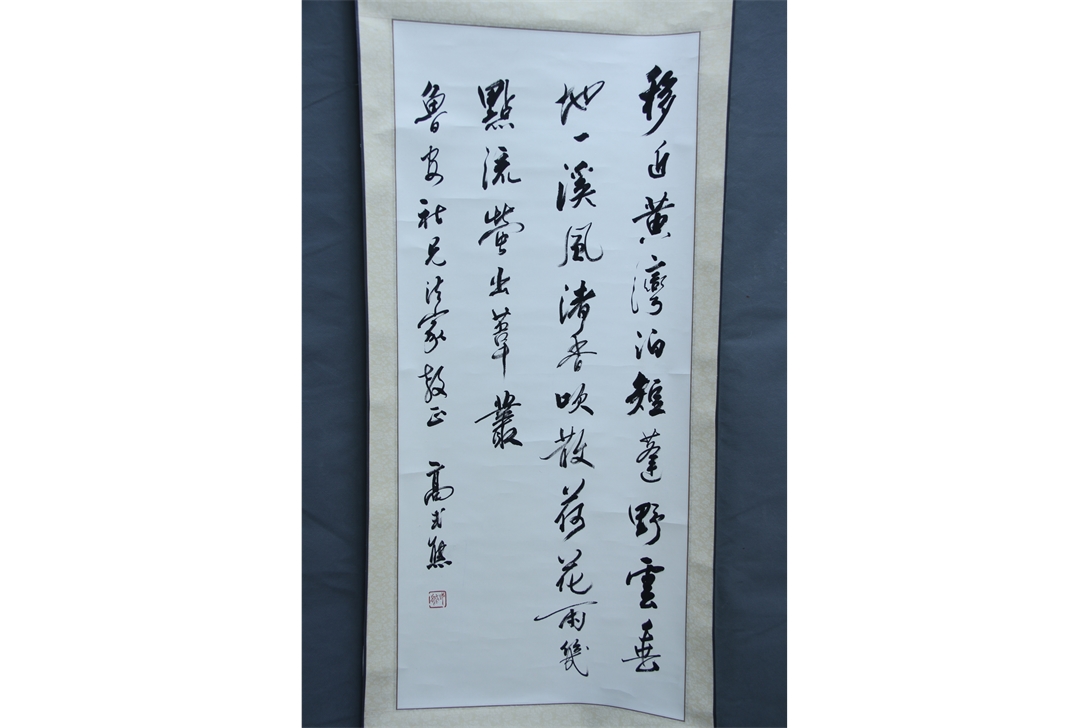 移近黄灣泊短蓬野雲垂
地一溪風渚香吹散荷花雨幾
點流螢出草叢
魯安社兄法家教正 高式熊